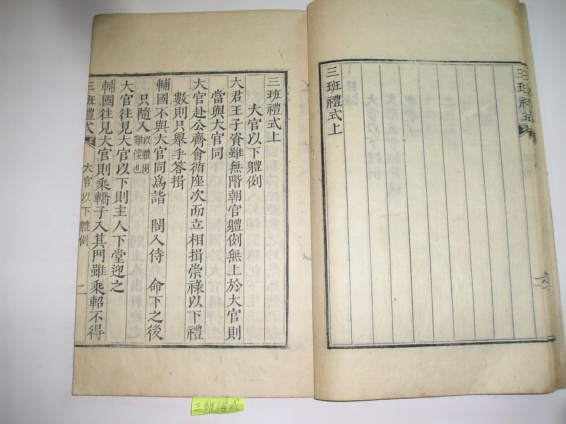 三班禮式
三班禮式上
三班禮式上
大官以下軆例
大君王子資雖無階朝官軆例無上於大官則
當與大官同
大官赴公齊會循座次而立相揖崇祿以下禮
數則只舉手答揖
輔國不與大官同爲詣 閤入侍 命下之後
只隨入以軆例
大官往見大官以下則主人下堂迎之
輔國往見大官則乘轎子入其門雖乘軺不得
三班禮式 大官以下軆例 二